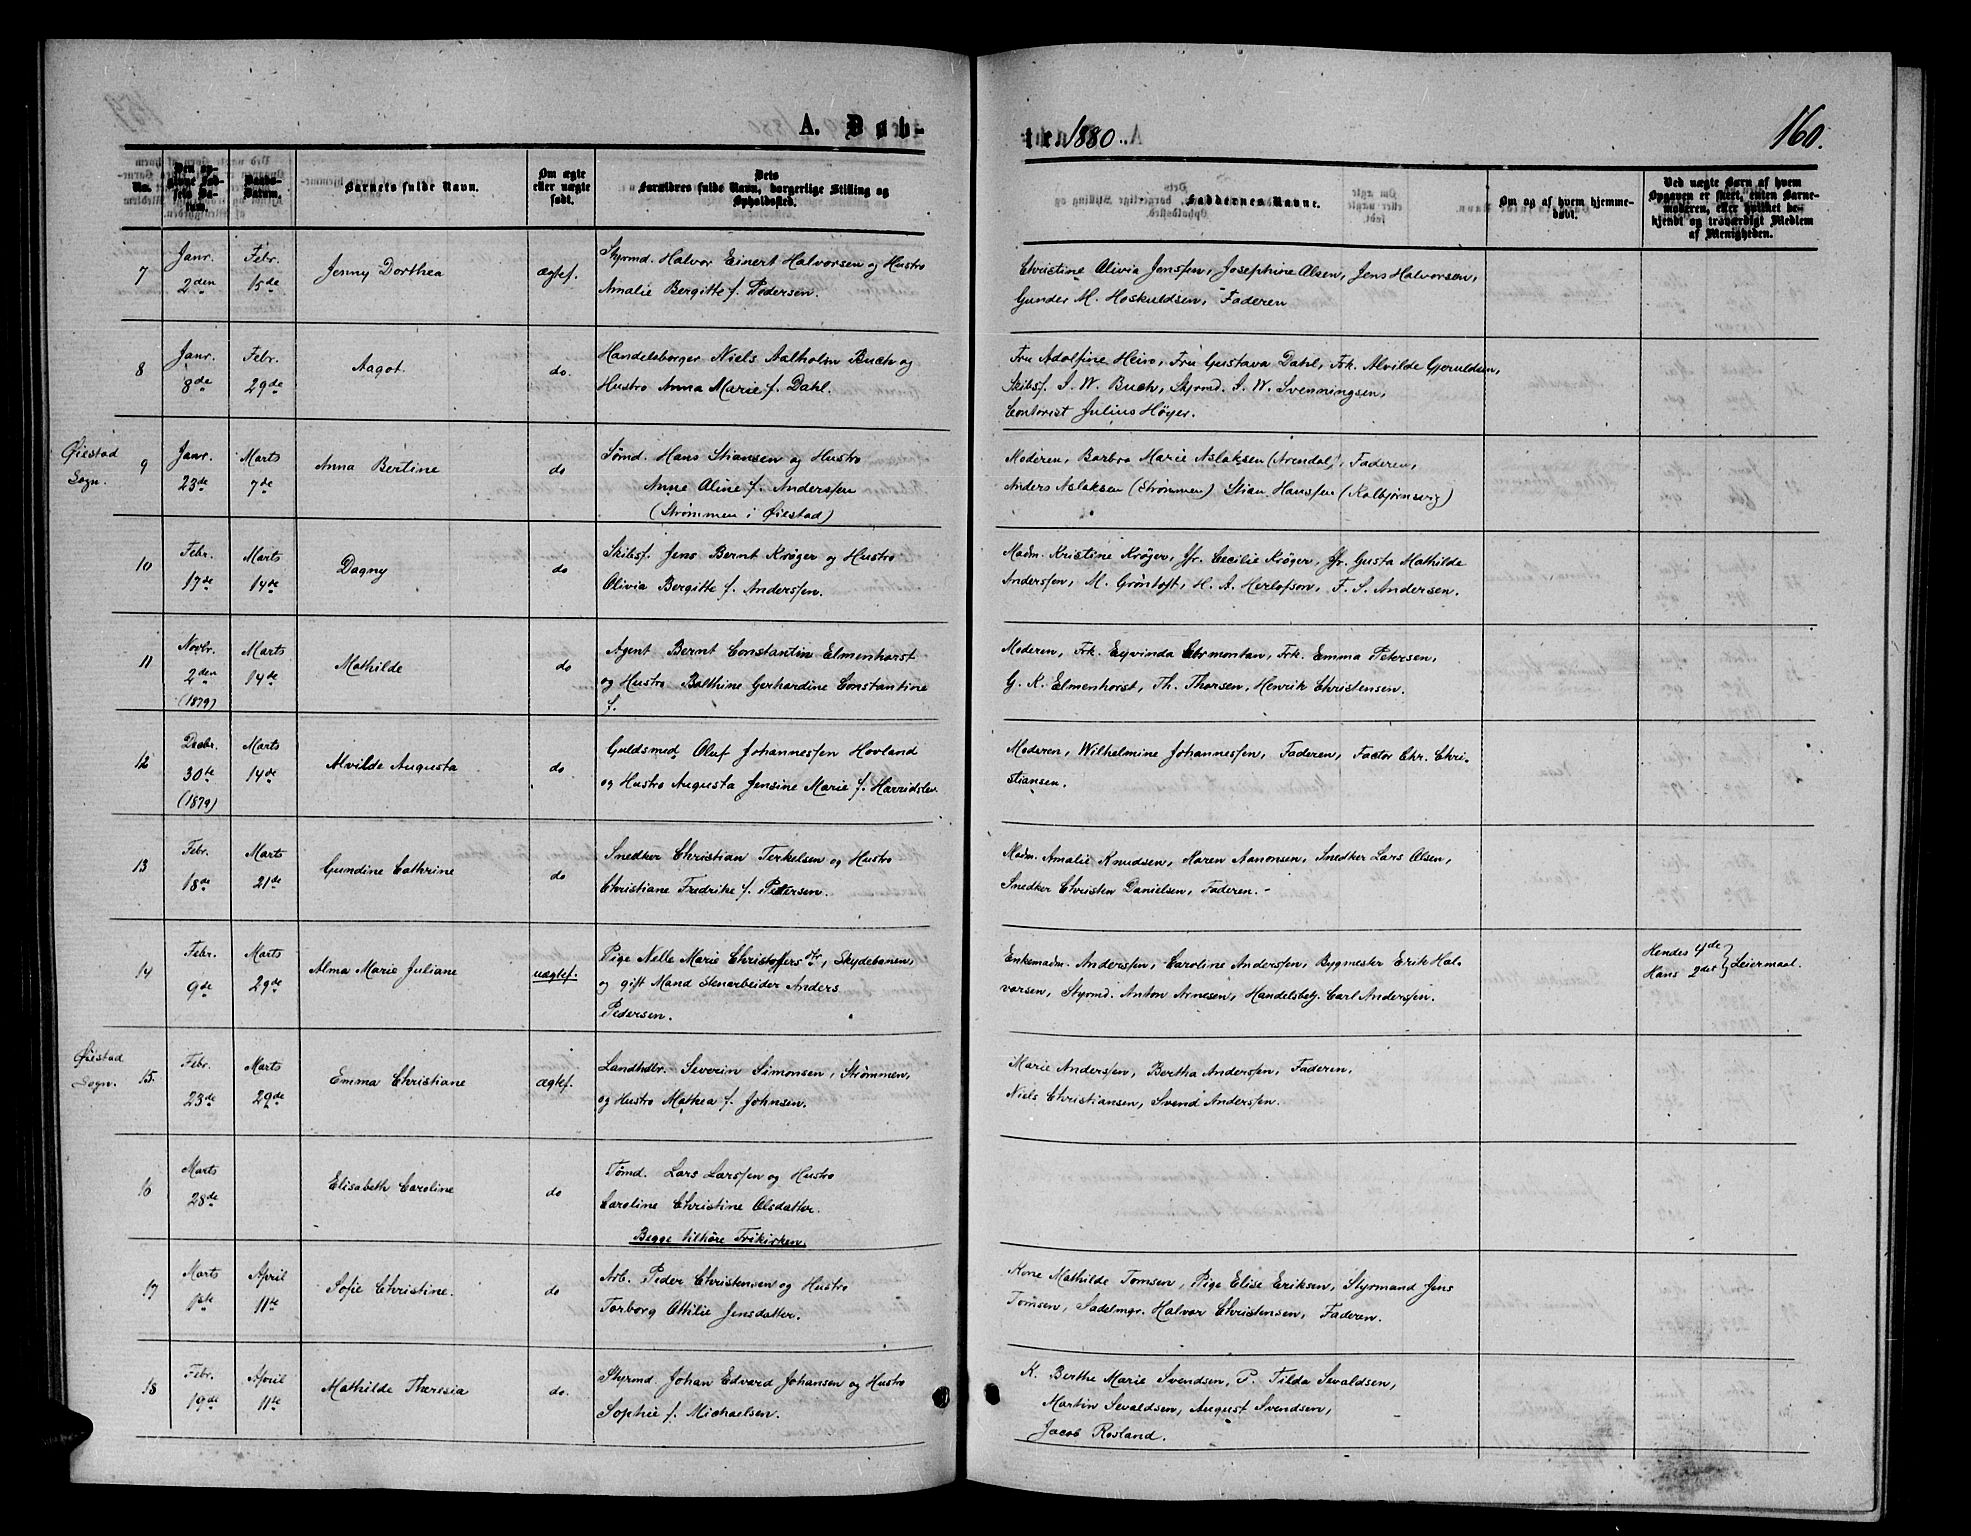 A. Døb-
te. 1880.
160.
No.
Den opgivne Fødsels Datum.
Daabs-Datum.
Barnets fulde Navn.
Om ægte eller uægte født.
Dets Forældres fulde Navn, borgerlige Stilling og Opholdssted.
Faddernes Navne.
Om og af hvem hjemmedøbt.
Ved uægte Børn af hvem Opgaven er skeet, enten Barnemoderen, eller hvilket bekjendt og troværdigt Medlem af Menigheden.
7
Janr. 2den
Febr. 15de
Jenny Dorthea
ægtef.
Styrmd. Halvor Einert Halvorsen og Hustro
Amalie Bergitte f. Pedersen.
Christine Olivia Jensen, Josephine Olsen, Jens Halvorsen,
Gunder M. Hoskuldsen, Faderen
8
Janr. 8de
Febr. 29de
Aagot
do.
Handelsborger Niels Aalholm Buch og
Hustro Anna Marie f. Dahl.
Fru Adolfine Heiro, Fru Gustava Dahl, Frk. Alvilde Gjeruldsen,
Skibsf. S. W. Buch, Styrmd. S. W. Svenningsen,
Contorist Julius Høyer.
Øiestad
Sogn.
9
Janr. 23de
Marts 7de
Anna Bertine
do
Sømd. Hans Stiansen og Hustro
Anne Aline f. Anderssen
(Strømmen i Øiestad)
Moderen, Barbro Marie Aslaksen (Arendal), Faderen,
Anders Aslaksen (Strømmen) Stian Hanssen (Kolbjørnsvig)
10
Febr. 17de
Marts 14de
Dagny
do
Skibsf. Jens Bernt Krøger og Hustro
Olivia Bergitte f. Anderssen.
Madm. Kristine Krøger, Jfr. Cecilie Krøger, Jfr. Gusta Mathilde
Anderssen, M. Grøntoft, H. A. Herlofson, F. S. Andersen.
11
Novbr. 2den (1879)
Marts 14de
Mathilde
do
Agent Bernt Constantin Elmenhorst
og Hustro Balthine Gerhardine Constantine
f.
Moderen, Frk. Eyvinda Ormontan, Frk. Emma Petersen,
G. K. Elmenhorst, Th. Thorsen, Henrik Christensen.
12
Decbr. 30te (1879)
Marts 14de
Alvilde Augusta
do
Guldsmed Oluf Johannessen Hovland
og Hustro Augusta Jensine Marie f. Harridslev
Moderen, Wilhelmine Johannessen, Faderen, Factor Chr. Chri-
stiansen.
13
Febr. 18de
Marts 21de
Gundine Cathrine
do
Snedker Christian Terkelsen og Hustro
Christiane Fredrike f. Pettersen.
Madm. Amalie Knudsen, Karen Aanonsen, Snedker Lars Olsen,
Snedker Christen Danielsen, Faderen.
14
Febr. 9de
Marts 29de
Alma Marie Juliane
uægtef.
Pige Nelle Marie Christoffersdtr, Skydebanen,
og gift Mand Stenarbeider Anders
Pedersen.
Enkemadm. Anderssen, Caroline Anderssen, Bygmester Erik Hal-
vorsen, Styrmd. Anton Arnesen, Handelsbetj. Carl Anderssen.
Hendes 4de } Leiermaal.
Hans 2det
Øiestad
Sogn.
15.
Febr. 23de
Marts 29de
Emma Christiane
ægtef.
Landhdlr. Severin Simonsen, Strømmen,
og Hustro Mathea f. Johnsen.
Marie Anderssen, Bertha Anderssen, Faderen,
Niels Christiansen, Svend Anderssen.
16
Marts 28de
Elisabeth Caroline
do
Tømd. Lars Larssen og Hustro
Caroline Christine Olsdatter.
Begge tilhøre Frikirken.
17
Marts 1ste
April 11te
Sofie Christine.
do
Arb. Peder Christensen og Hustro
Torborg Ottilie Jensdatter.
Kone Mathilde Tomsen, Pige Elise Eriksen, Styrmand Jens
Tomsen, Sadelmgr. Halvor Christensen, Faderen.
18
Febr. 19de
April 11te
Mathilde Theresia
do.
Styrmd. Johan Edvard Johansen og Hustro
Sophie f. Michaelsen.
K. Berthe Marie Svendsen, P. Tilda Sevaldsen,
Martin Sevaldsen, August Svendsen,
Jacob Rosland.